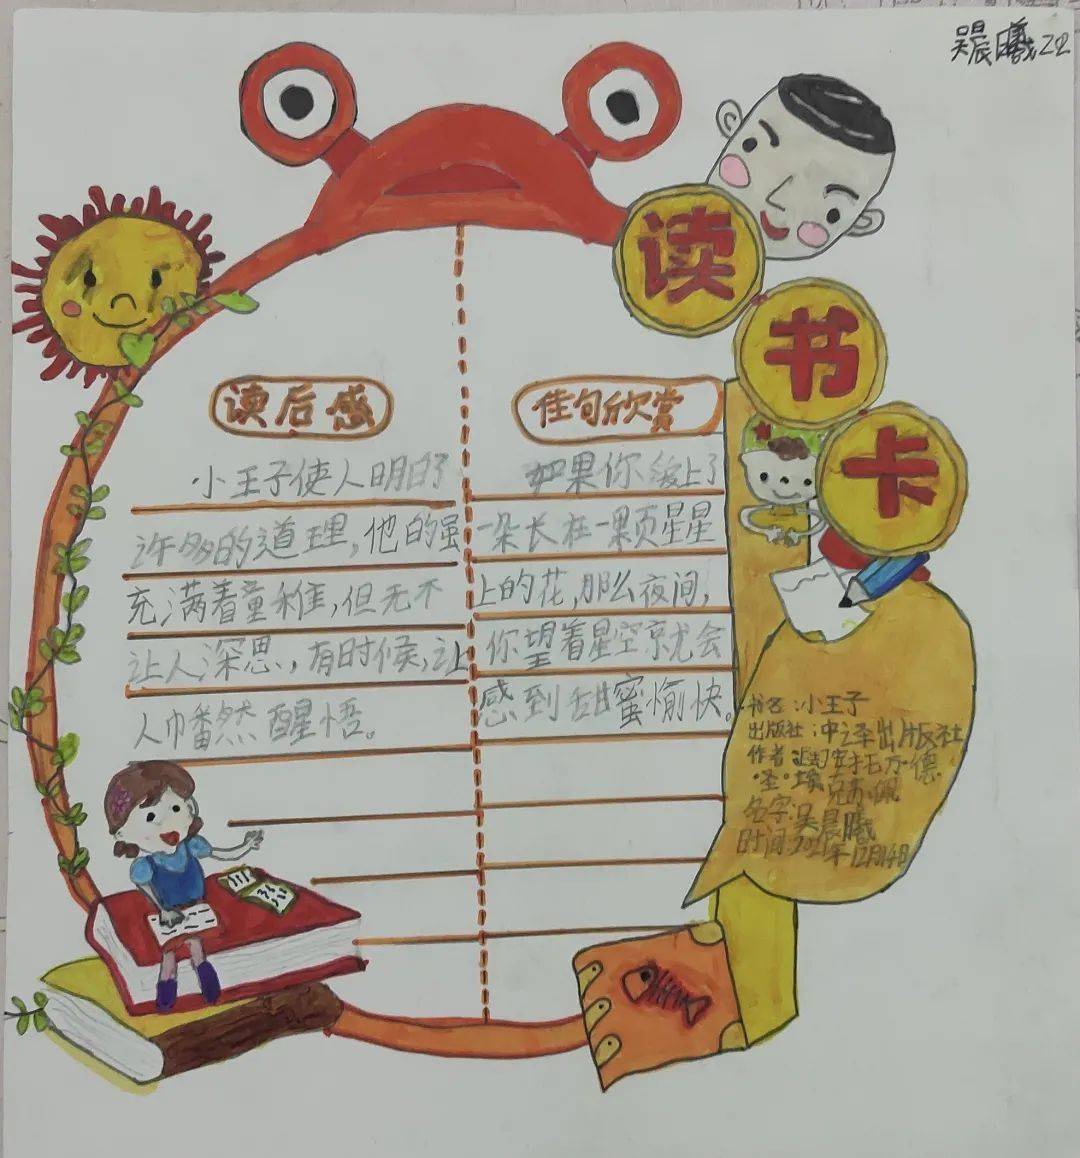 吴晨曦22
读书卡
读后感
小王子使人明白了
许多的道理,他的虽
充满着童稚,但无不
让人深思,有时候,让
人幡然醒悟。
佳句欣赏
如果你爱上了
一朵长在一颗星星
上的花,那么夜间,
你望着星空就会
感到甜蜜愉快。
书名:小王子
出版社:中译出版社
作者
·圣·埃克苏佩
名字:吴晨曦
时间:2021年12月14日